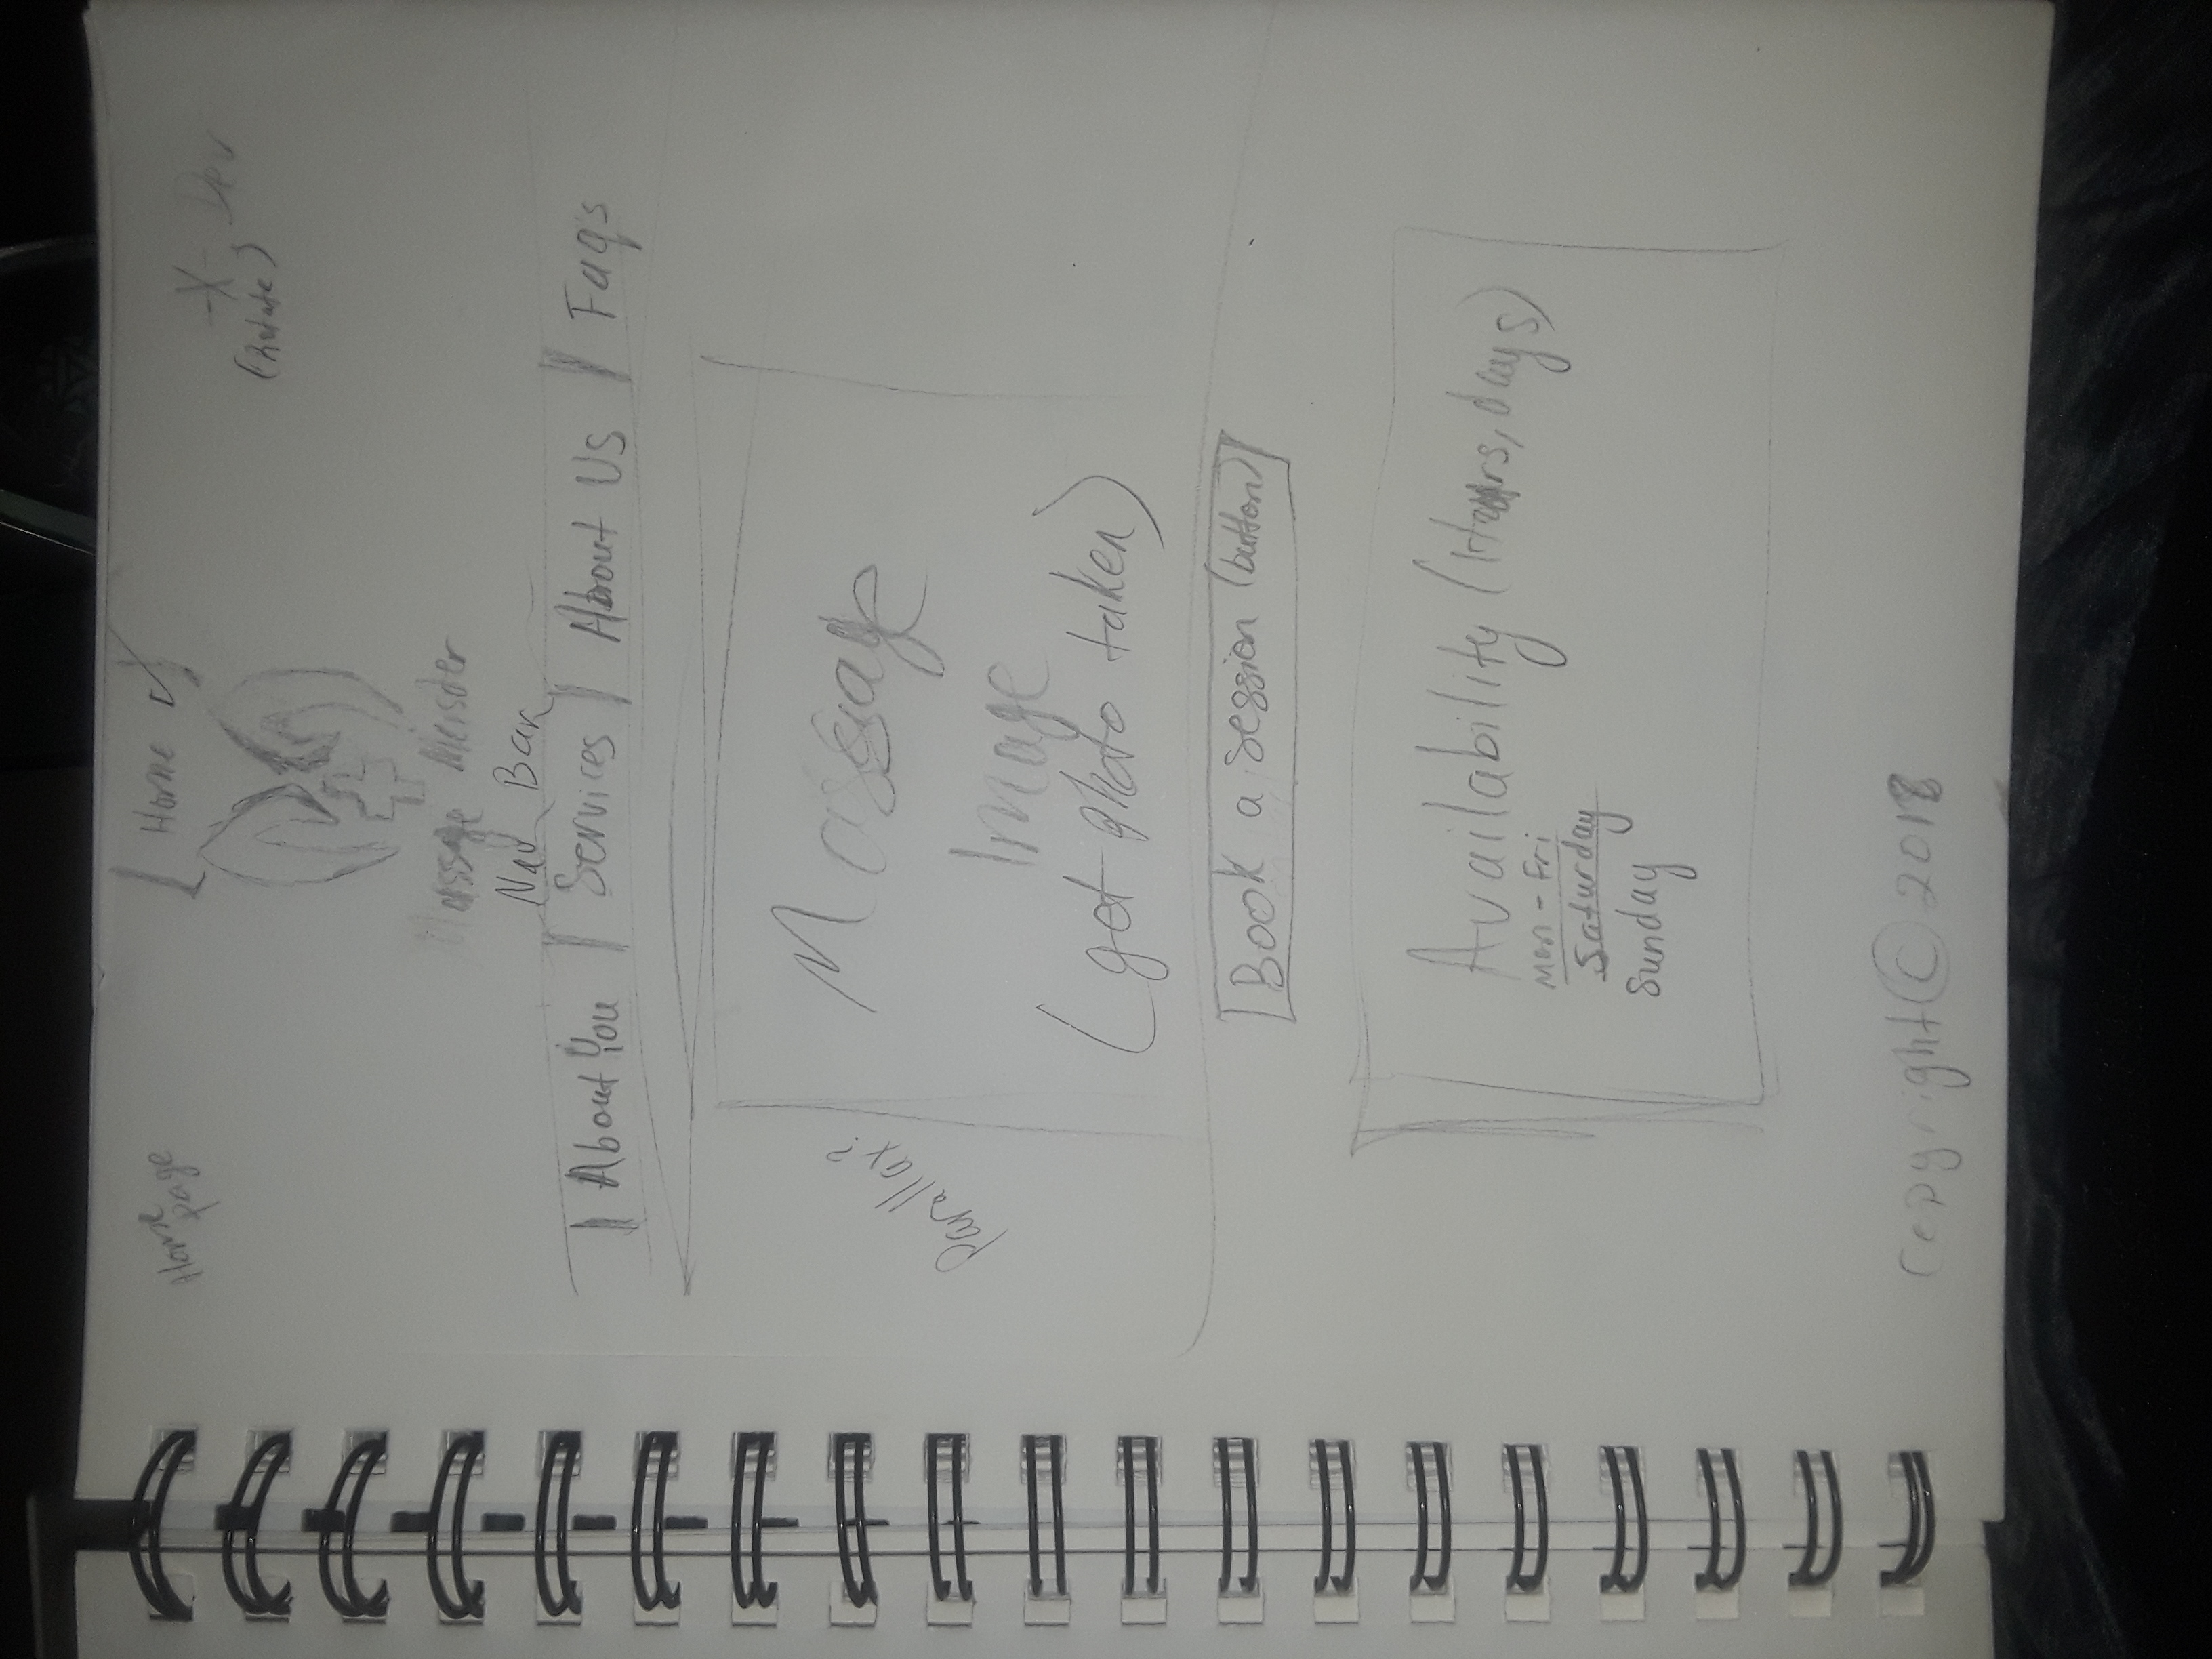 Home
page
Home
-X- Dev
(Rotate)
Massage Meister
Nav Bar
About You | Services | About Us | Faq's
Parallax?
Massage
Image
(get photo taken)
Book a session (button)
Availability (Hours, days)
Mon - Fri
Saturday
Sunday
Copyright © 2018